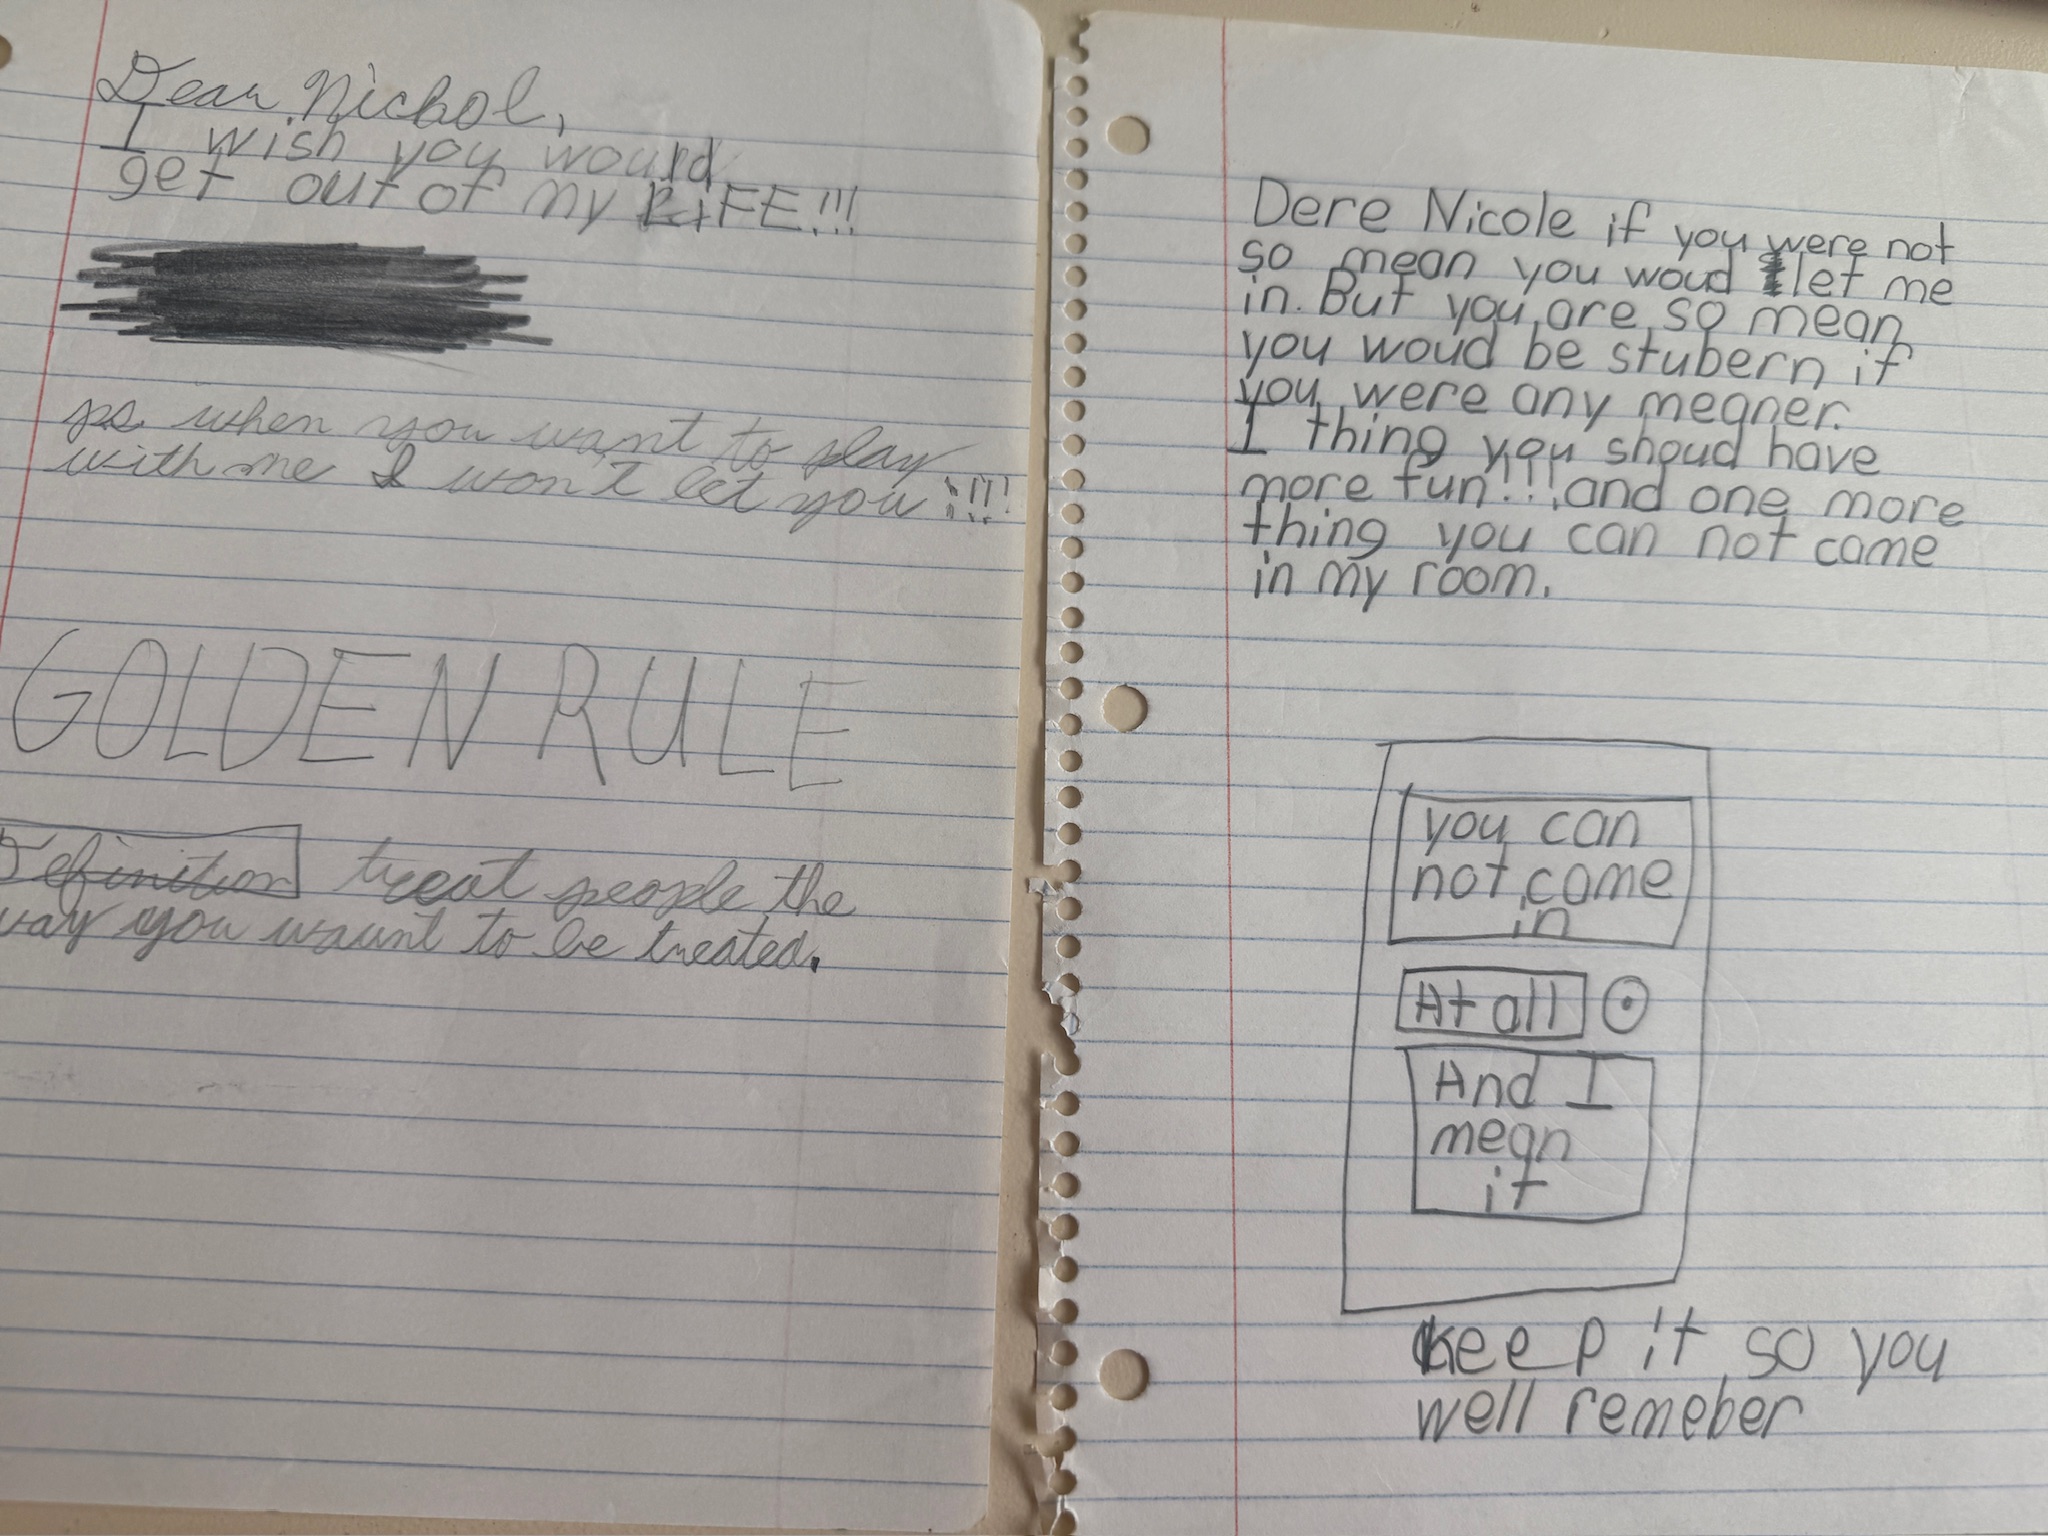 Dear Nichol,
I wish you would
get out of my LIFE!!!
ps. when you want to play
with me I won't let you !!!!
GOLDEN RULE
Definition treat people the
way you waunt to be treated.
Dere Nicole if you were not
so mean you woud let me
in. But you are so mean
you woud be stubern if
you were any meaner.
I thing you shoud have
more fun!!! and one more
thing you can not came
in my room.
you can
not come
in
At all
And I
mean
it
keep it so you
well remeber